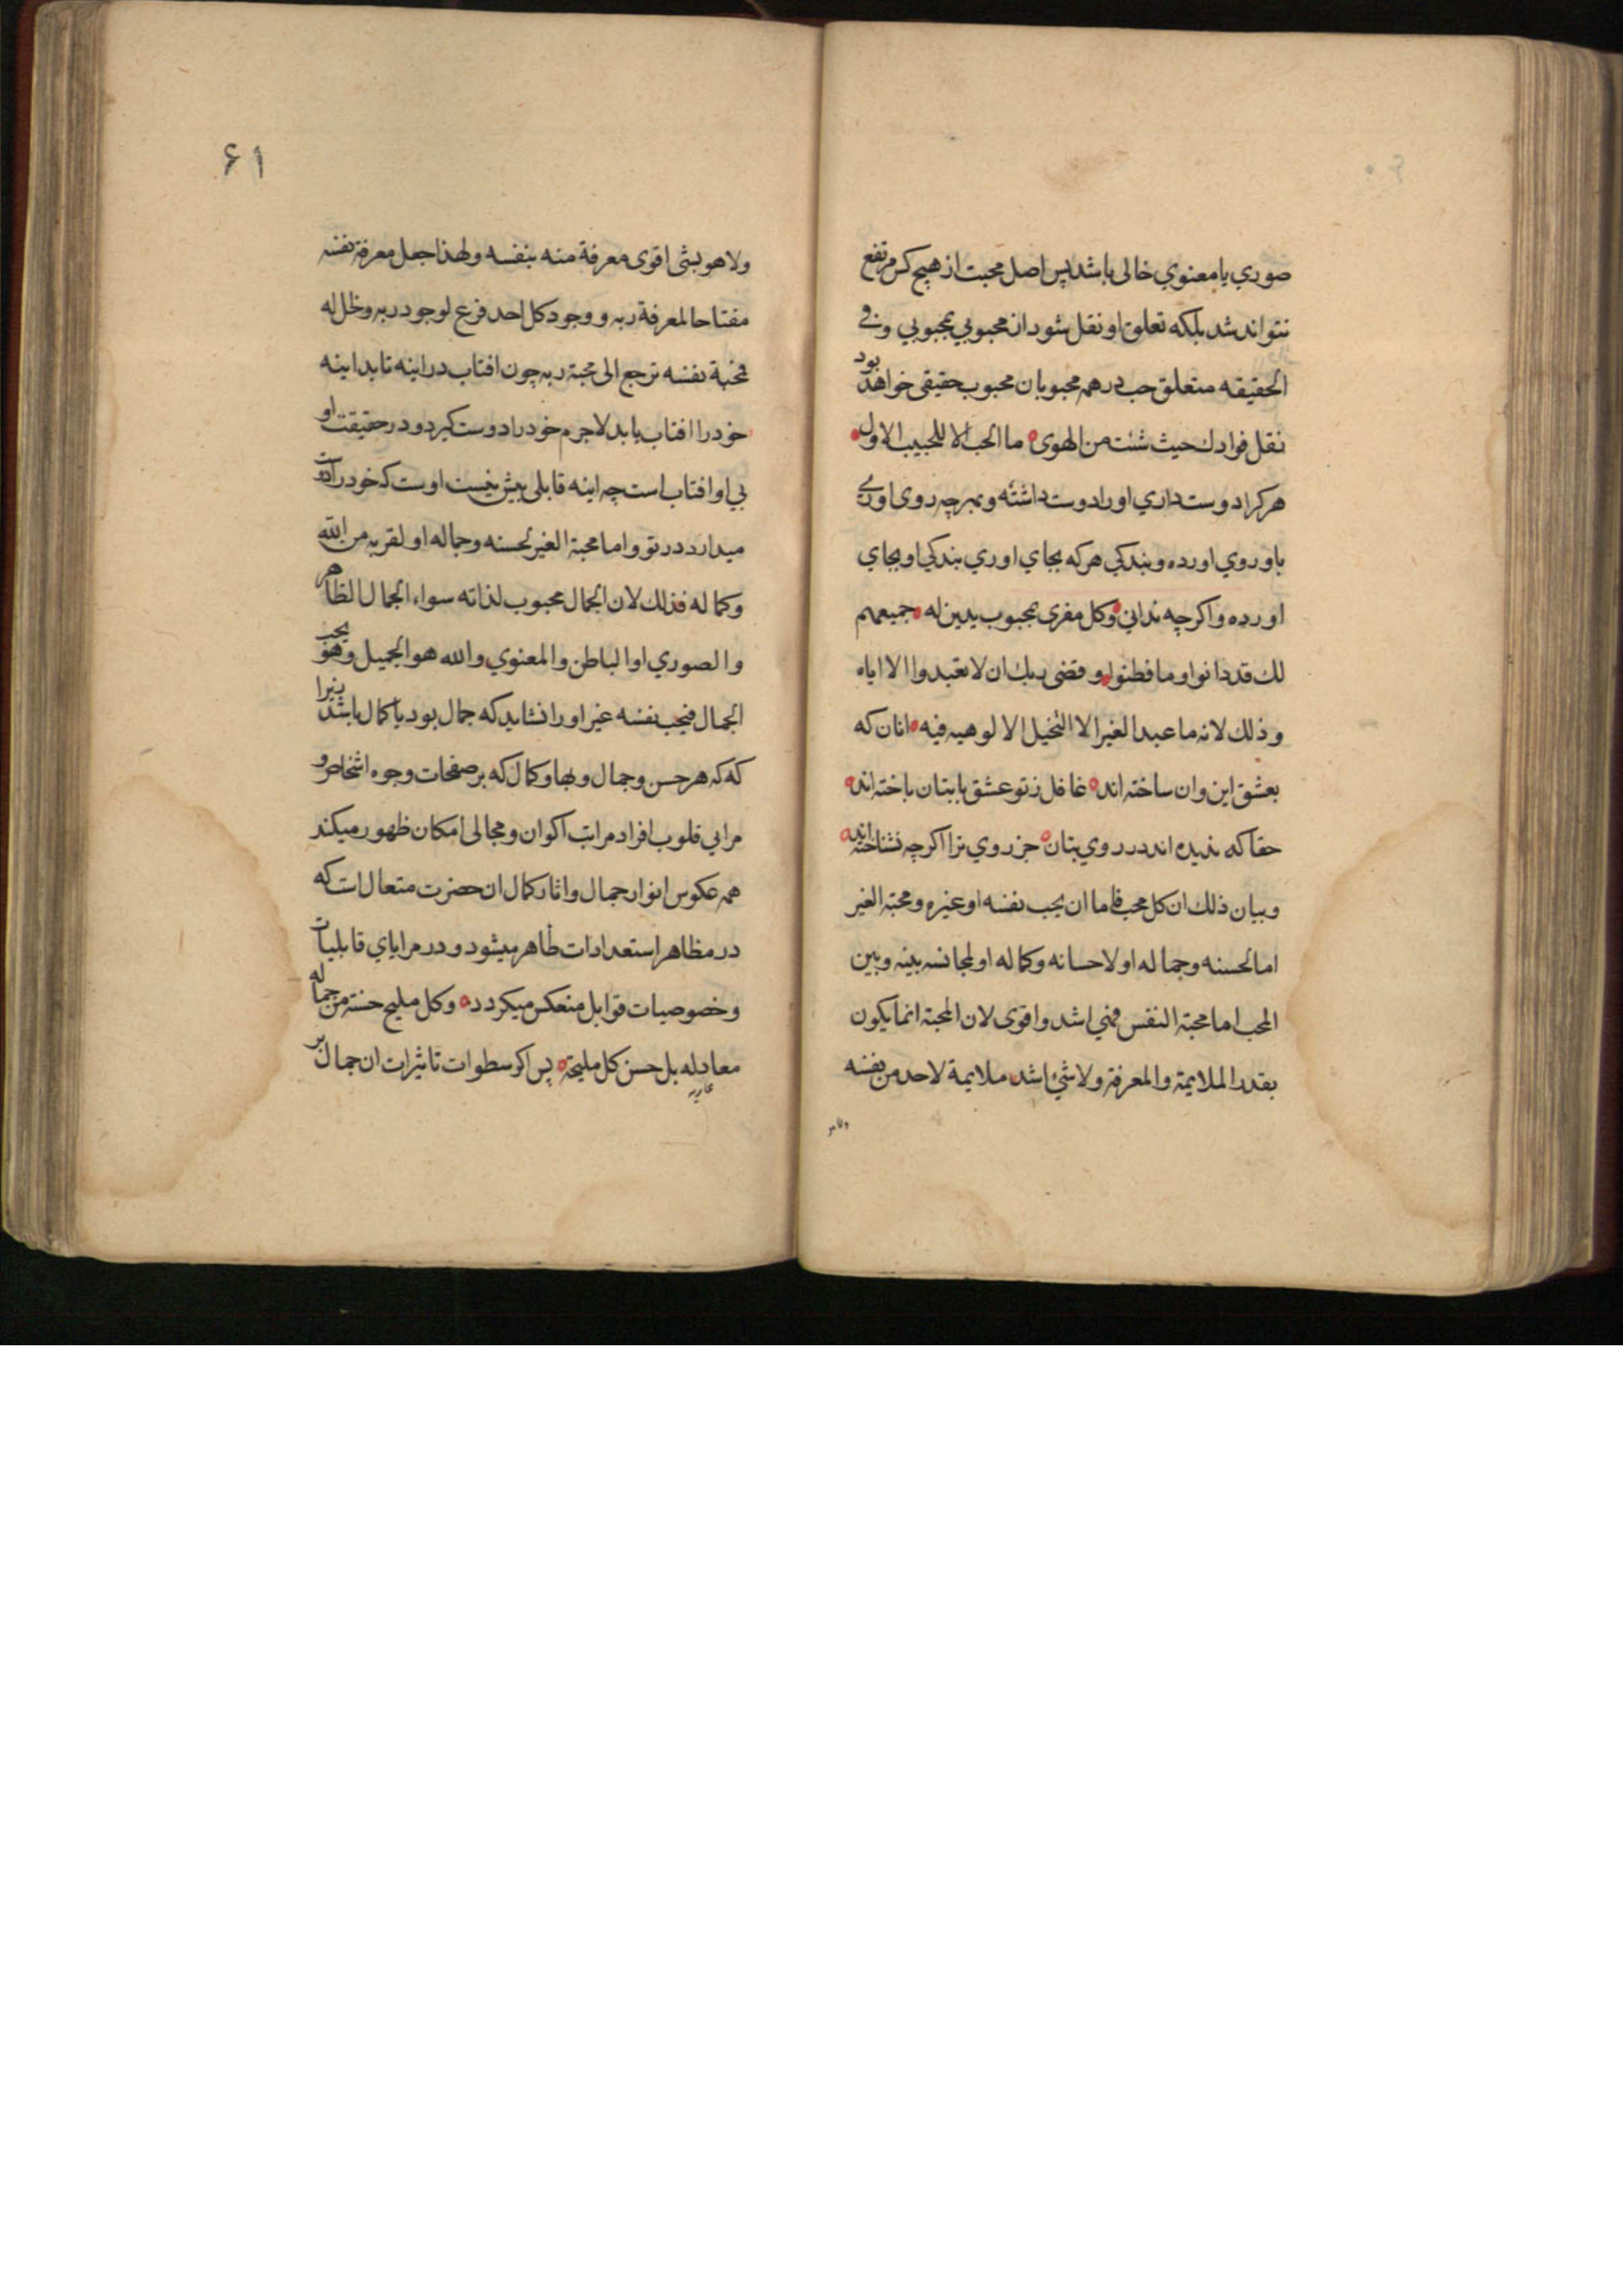 صوري يا معنوي خالى باشد پس اصل محبت از هيچ كس مرتفع
نتواند شد بلكه تعلق او نقل شود از محبوبي بمحبوبي و في
الحقيقه متعلق حب در همه محبوبان محبوب حقيقى خواهد بود
نقل فوادك حيث شئت من الهوى ما الحب الا للحبيب الاول
هر كرا دوست داري او را دوست داشته و بهر چه روى اوري
باو روي اورده و بندكي هر كه بجاي اوري بندكي او بجاي
اورده و اكرچه نداني وكل مغرى بمحبوب يدين له جميعهم
لك قد دانوا وما فطنوا وقضى ربك ان لا تعبدوا الا اياه
وذلك لانه ما عبد الغير الا لتخيل الالوهيه فيه انان كه
بعشق اين وان ساخته اند غافل ز تو عشق با بتان باخته اند
حقا كه نديده اند در روي بتان جز روي ترا اكرچه نشناخته اند
وبيان ذلك ان كل محب فاما ان يحب نفسه او غيره ومحبة الغير
اما لحسنه وجماله او لاحسانه وكماله او لمجانسه بينه وبين
المحب اما محبة النفس فهي اشد واقوى لان المحبة انما يكون
بقدر الملايمة والمعرفة ولا شئ اشد ملايمة لاحد من نفسه
ولا هو
۶۱
ولا هو بشى اقوى معرفة منه بنفسه ولهذا جعل معرفة نفسه
مفتاحا لمعرفة ربه و وجود كل احد فرع لوجود ربه وظل له
فمحبة نفسه ترجع الى محبة ربه چون افتاب در اينه تابد اينه
خود را افتاب يابد لاجرم خود را دوست كيرد و در حقيقت او
بي او افتاب است چه اينه قابلى بيش نيست اوست كه خود را دوست
ميدارد در تو و اما محبة الغير لحسنه وجماله او لقربه من الله
وكماله فذلك لان الجمال محبوب لذاته سواء الجمال الظاهر
والصوري او الباطن والمعنوي والله هو الجميل وهو يحب
الجمال فيحب نفسه غير او را نشايد كه جمال بود يا كمال باشد زيرا
كه كه هر حسن وجمال وبها وكمال كه بر صفحات وجوه اشخاص و
مرايي قلوب افراد مراتب اكوان ومجالى امكان ظهور ميكند
همه عكوس انوار جمال واثار كمال ان حضرت متعال است كه
در مظاهر استعدادات ظاهر ميشود و در مراياي قابليات
وخصوصيات قوابل منعكس ميكردد وكل مليح حسنه من جماله
معار له بل حسن كل مليحة پس اكر سطوات تاثيرات ان جمال بر